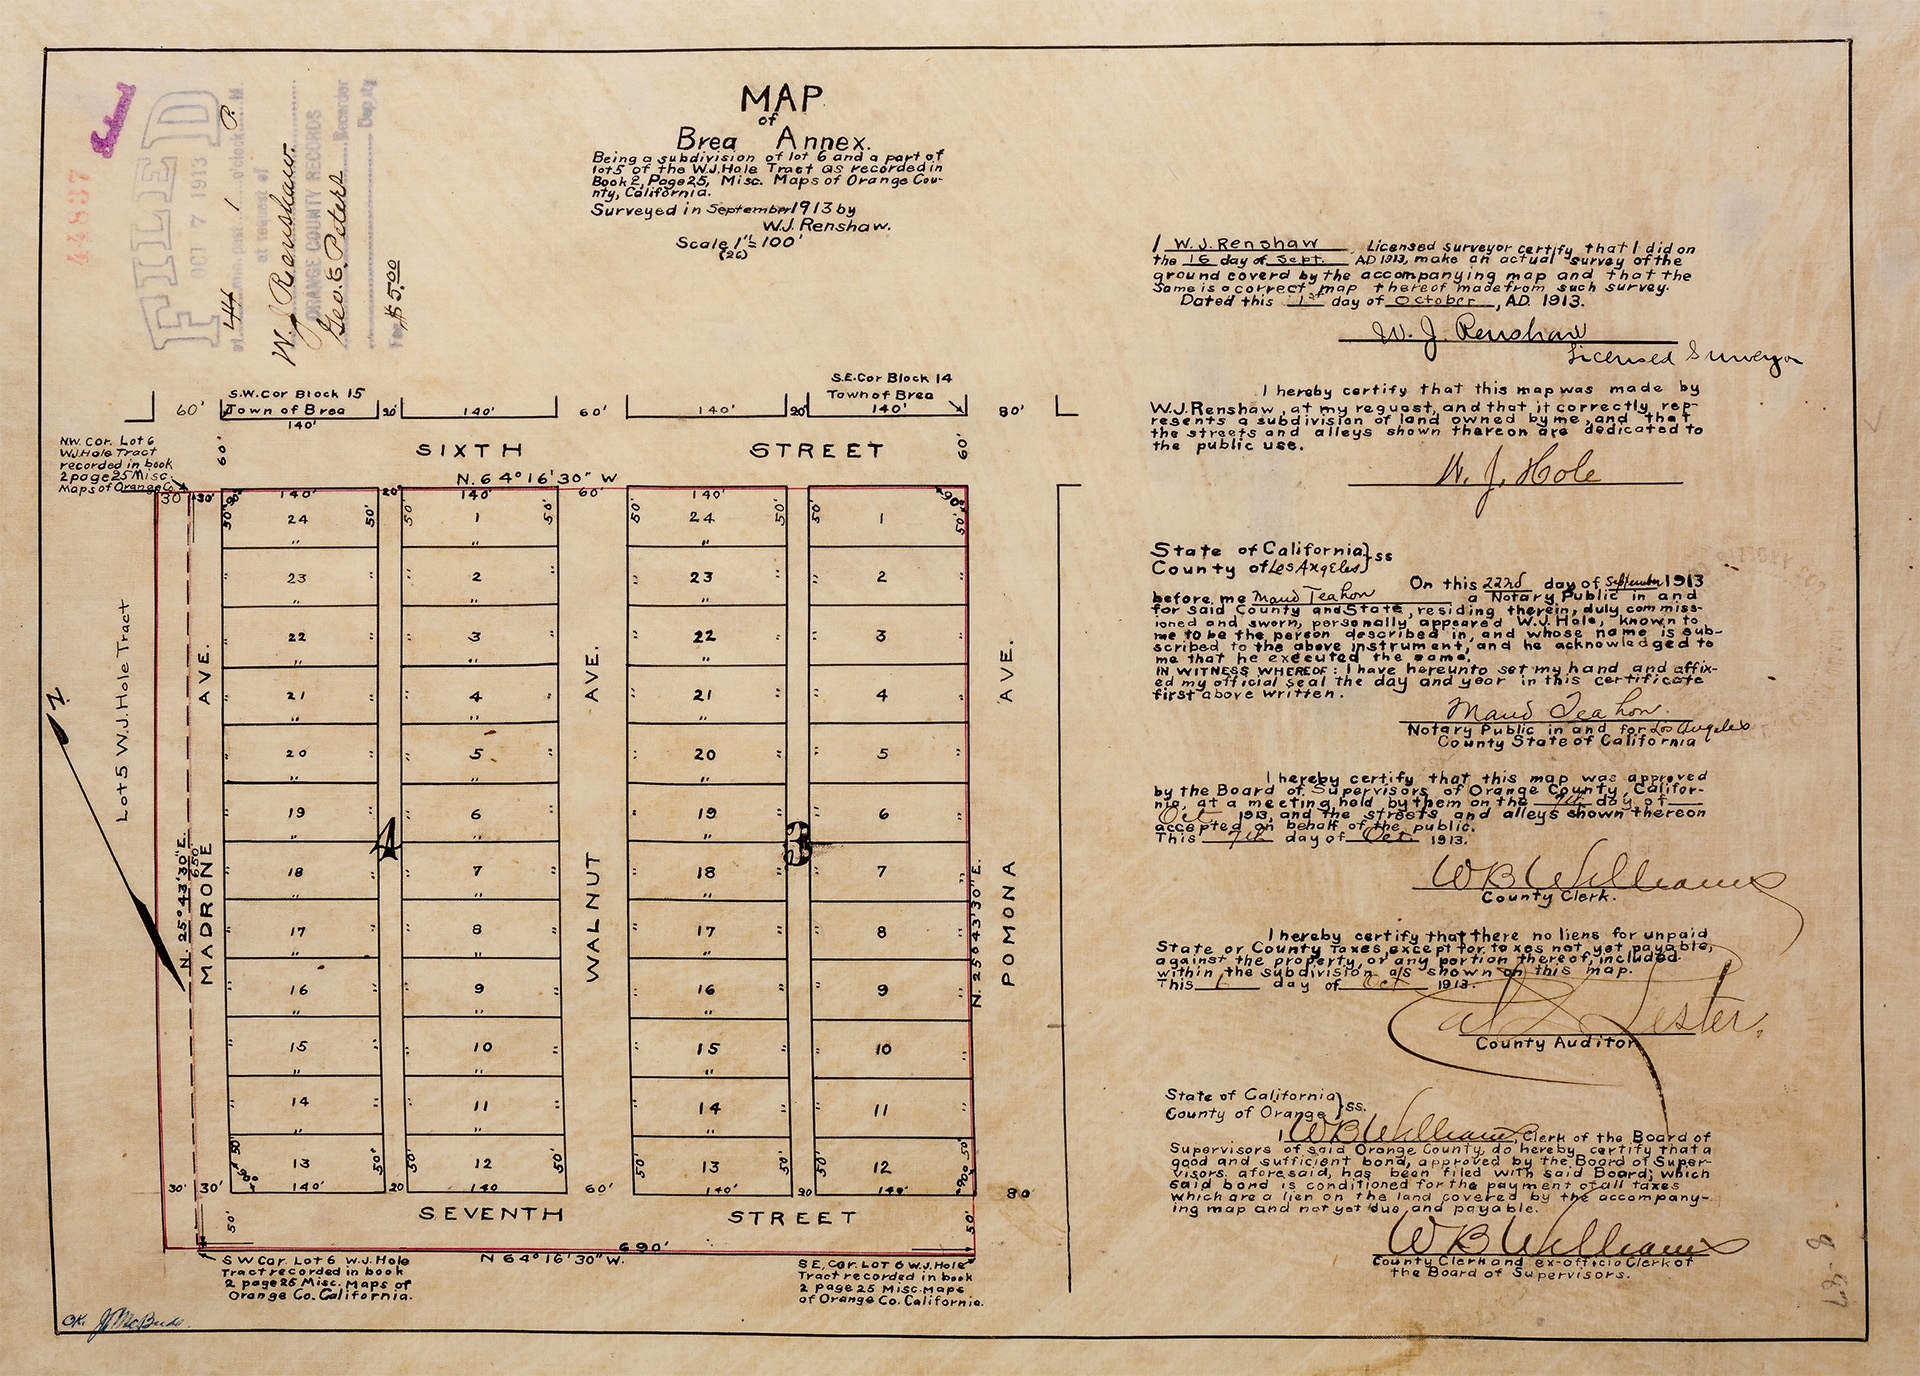 MAP
of
Brea Annex.
Being a subdivision of lot 6 and a part of
lot 5 of the W.J. Hole Tract as recorded in
Book 2, Page 25, Misc. Maps of Orange Cou-
nty, California.
Surveyed in September 1913 by
W.J. Renshaw.
Scale 1"=100'
(26)
44837
FILED
OCT 7 1913
44 min. past 1 o'clock P. M.
at request of
W. J. Renshaw.
ORANGE COUNTY RECORDS
Geo. E. Peters Recorder
Deputy
Fee $5.00
60'
S.W. Cor Block 15
Town of Brea
140'
20'
140'
60'
140'
20'
S.E. Cor Block 14
Town of Brea
140'
80'
60'
SIXTH STREET
60'
NW. Cor. Lot 6
W.J. Hole Tract
recorded in book
2 page 25 Misc.
Maps of Orange Co.
N. 64° 16' 30" W
30' 30' 140' 20' 140' 60' 140'
90° 90°
50' 50' 50' 50' 50' 50' 50' 50'
24 1 24 1
23 2 23 2
22 3 22 3
21 4 21 4
20 5 20 5
19 6 19 6
18 7 18 7
17 8 17 8
16 9 16 9
15 10 15 10
14 11 14 11
13 12 13 12
4
3
Lot 5 W.J. Hole Tract
N. 25° 43' 30" E.
650'
MADRONE AVE.
WALNUT AVE.
N. 25° 43' 30" E.
POMONA AVE.
50' 50° 50' 50' 50' 50' 50' 50'
90° 90°
30' 30' 140' 20 140 60' 140' 20 140' 80'
SEVENTH STREET
50' 50'
690'
N 64° 16' 30" W.
S W Cor. Lot 6 W.J. Hole
Tract recorded in book
2 page 25 Misc. Maps of
Orange Co. California.
S E, Cor. LOT 6 W.J. Hole
Tract recorded in book
2 page 25 Misc. Maps
of Orange Co. California.
OK. J. McBride.
I W. J. Renshaw Licensed surveyor certify that I did on
the 16 day of Sept. AD 1913, make an actual survey of the
ground coverd by the accompanying map and that the
same is a correct map thereof made from such survey.
Dated this 1st day of October, AD. 1913.
W. J. Renshaw
Licensed Surveyor
I hereby certify that this map was made by
W.J. Renshaw, at my request, and that it correctly rep-
resents a subdivision of land owned by me, and that
the streets and alleys shown thereon are dedicated to
the public use.
W. J. Hole
State of California } ss
County of Los Angeles
On this 22nd day of September 1913
before me Maud Teahon a Notary Public in and
for said County and State, residing therein, duly commiss-
ioned and sworn, personally appeared W.J. Hole, known to
me to be the person described in, and whose name is sub-
scribed to the above instrument, and he acknowledged to
me that he executed the same.
IN WITNESS WHEREOF: I have hereunto set my hand and affix-
ed my official seal the day and year in this certificate
first above written.
Maud Teahon.
Notary Public in and for Los Angeles
County State of California
I hereby certify that this map was approved
by the Board of Supervisors of Orange County, Califor-
nia, at a meeting held by them on the 7th day of
Oct 1913, and the streets and alleys shown thereon
accepted on behalf of the public.
This 7th day of Oct. 1913.
W B Williams
County Clerk.
I hereby certify that there no liens for unpaid
State or County Taxes, except for taxes not yet payable,
against the property, or any portion thereof, included
within the subdivision as shown on this map.
This 6 day of Oct 1913.
Lester.
County Auditor
State of California } ss.
County of Orange
I W B Williams, Clerk of the Board of
Supervisors of said Orange County, do hereby certify that a
good and sufficient bond, approved by the Board of Super-
visors aforesaid, has been filed with said Board; which
said bond is conditioned for the payment of all taxes
which are a lien on the land covered by the accompany-
ing map and not yet due and payable.
W B Williams
County Clerk and ex-officio Clerk of
the Board of Supervisors.